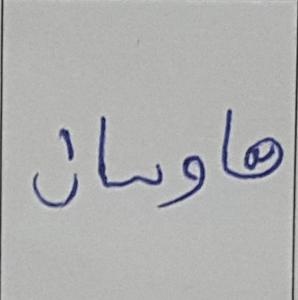 هاوسان